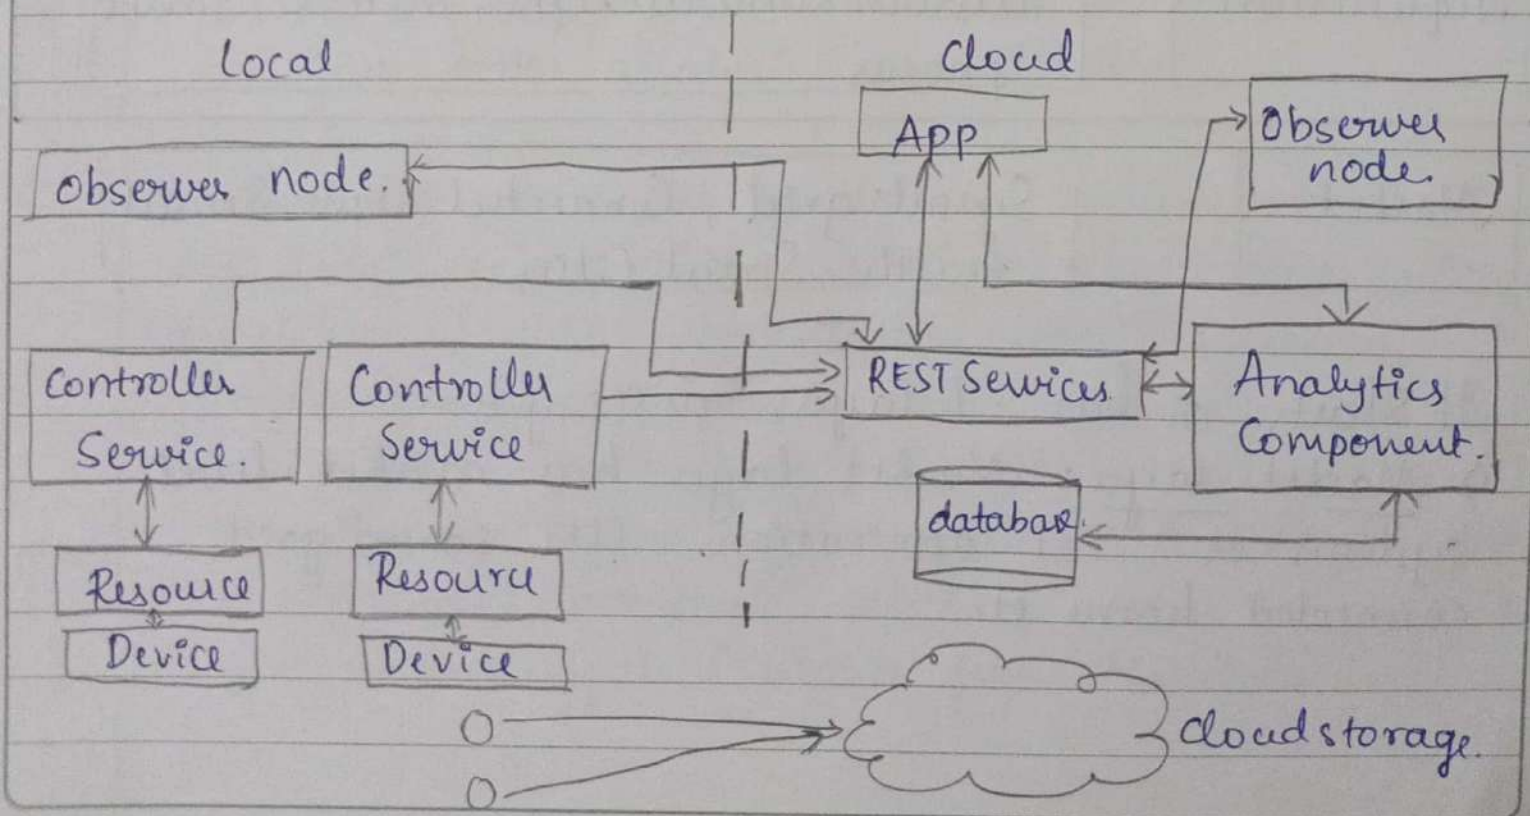 local
Cloud
App
Observer
node.
Observer node.
Controller
Service.
Controller
Service
REST Services
Analytics
Component.
database.
Resource
Resource
Device
Device
cloud storage.